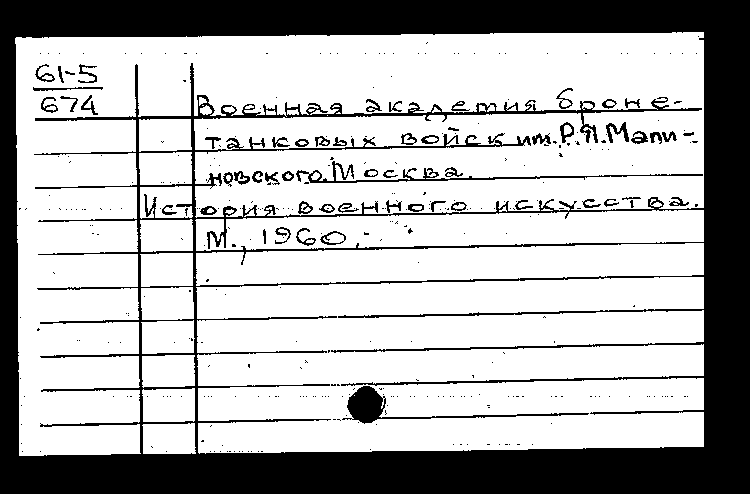 61-5
674
Военная академия броне-
танковых войск им. Р.Я. Мали-
новского. Москва.
История военного искусства.
М., 1960.-